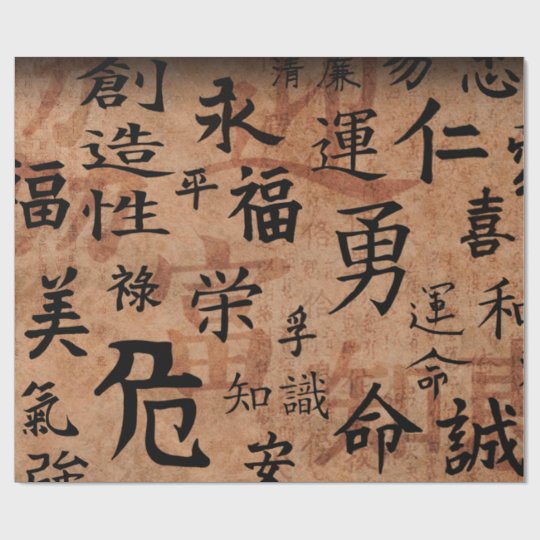 創造性
永
清
廉
運
仁
福
平
福
勇
喜
美
祿
栄
孚
運命
和
危
知識
命
氣
安
誠
強